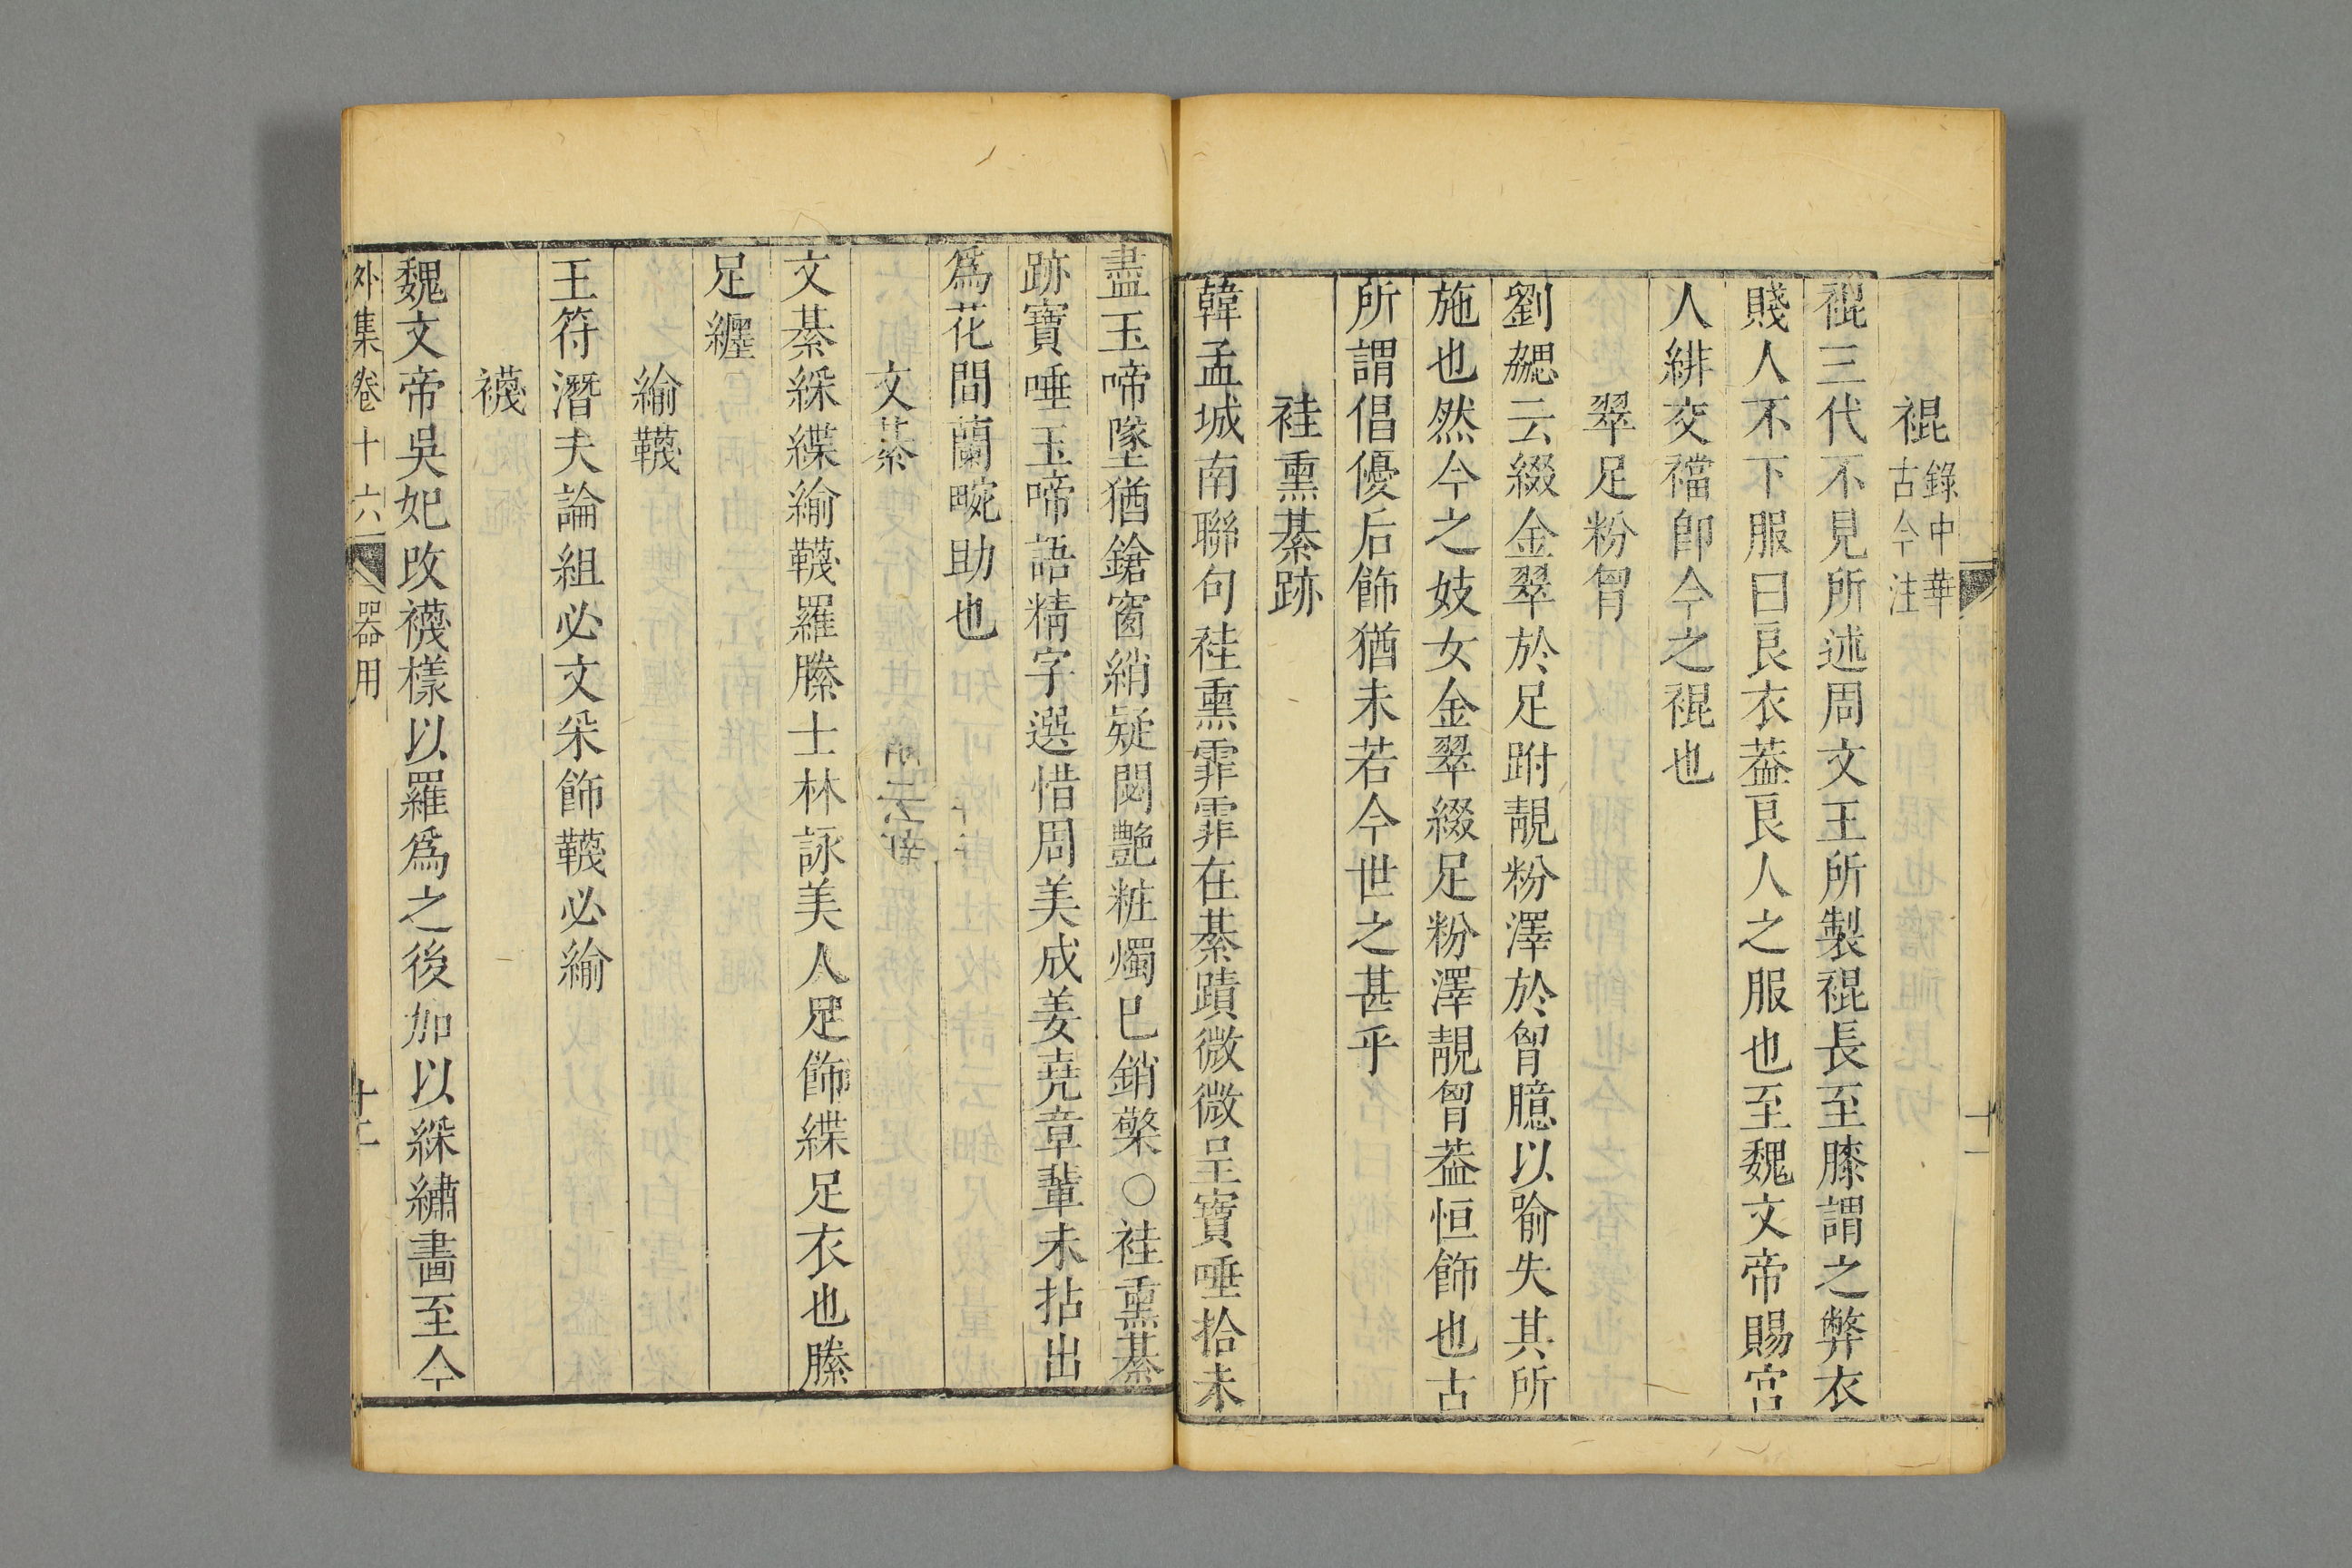 裩 錄中華古今注
裩三代不見所述周文王所製裩長至膝謂之弊衣
賤人不下服曰良衣葢良人之服也至魏文帝賜宮
人緋交襠卽今之裩也
翠足粉胷
劉勰云綴金翠於足跗靚粉澤於胷臆以喻失其所
施也然今之妓女金翠綴足粉澤靚胷葢恒飾也古
所謂倡優后飾猶未若今世之甚乎
袿熏綦跡
韓孟城南聯句袿熏霏霏在綦蹟微微呈寶唾拾未
盡玉啼墜猶鎗窗綃疑閟艷粧燭巳銷檠○袿熏綦
跡寶唾玉啼語精字選惜周美成姜堯章輩未拈出
爲花間蘭畹助也
文綦
文綦綵緤緰韈羅縢士林詠美人足飾緤足衣也縢
足纏
緰韈
王符潛夫論組必文采飾韈必緰
襪
魏文帝吳妃改襪樣以羅爲之後加以綵繡畫至今
外集卷十六 器用 十二
十一